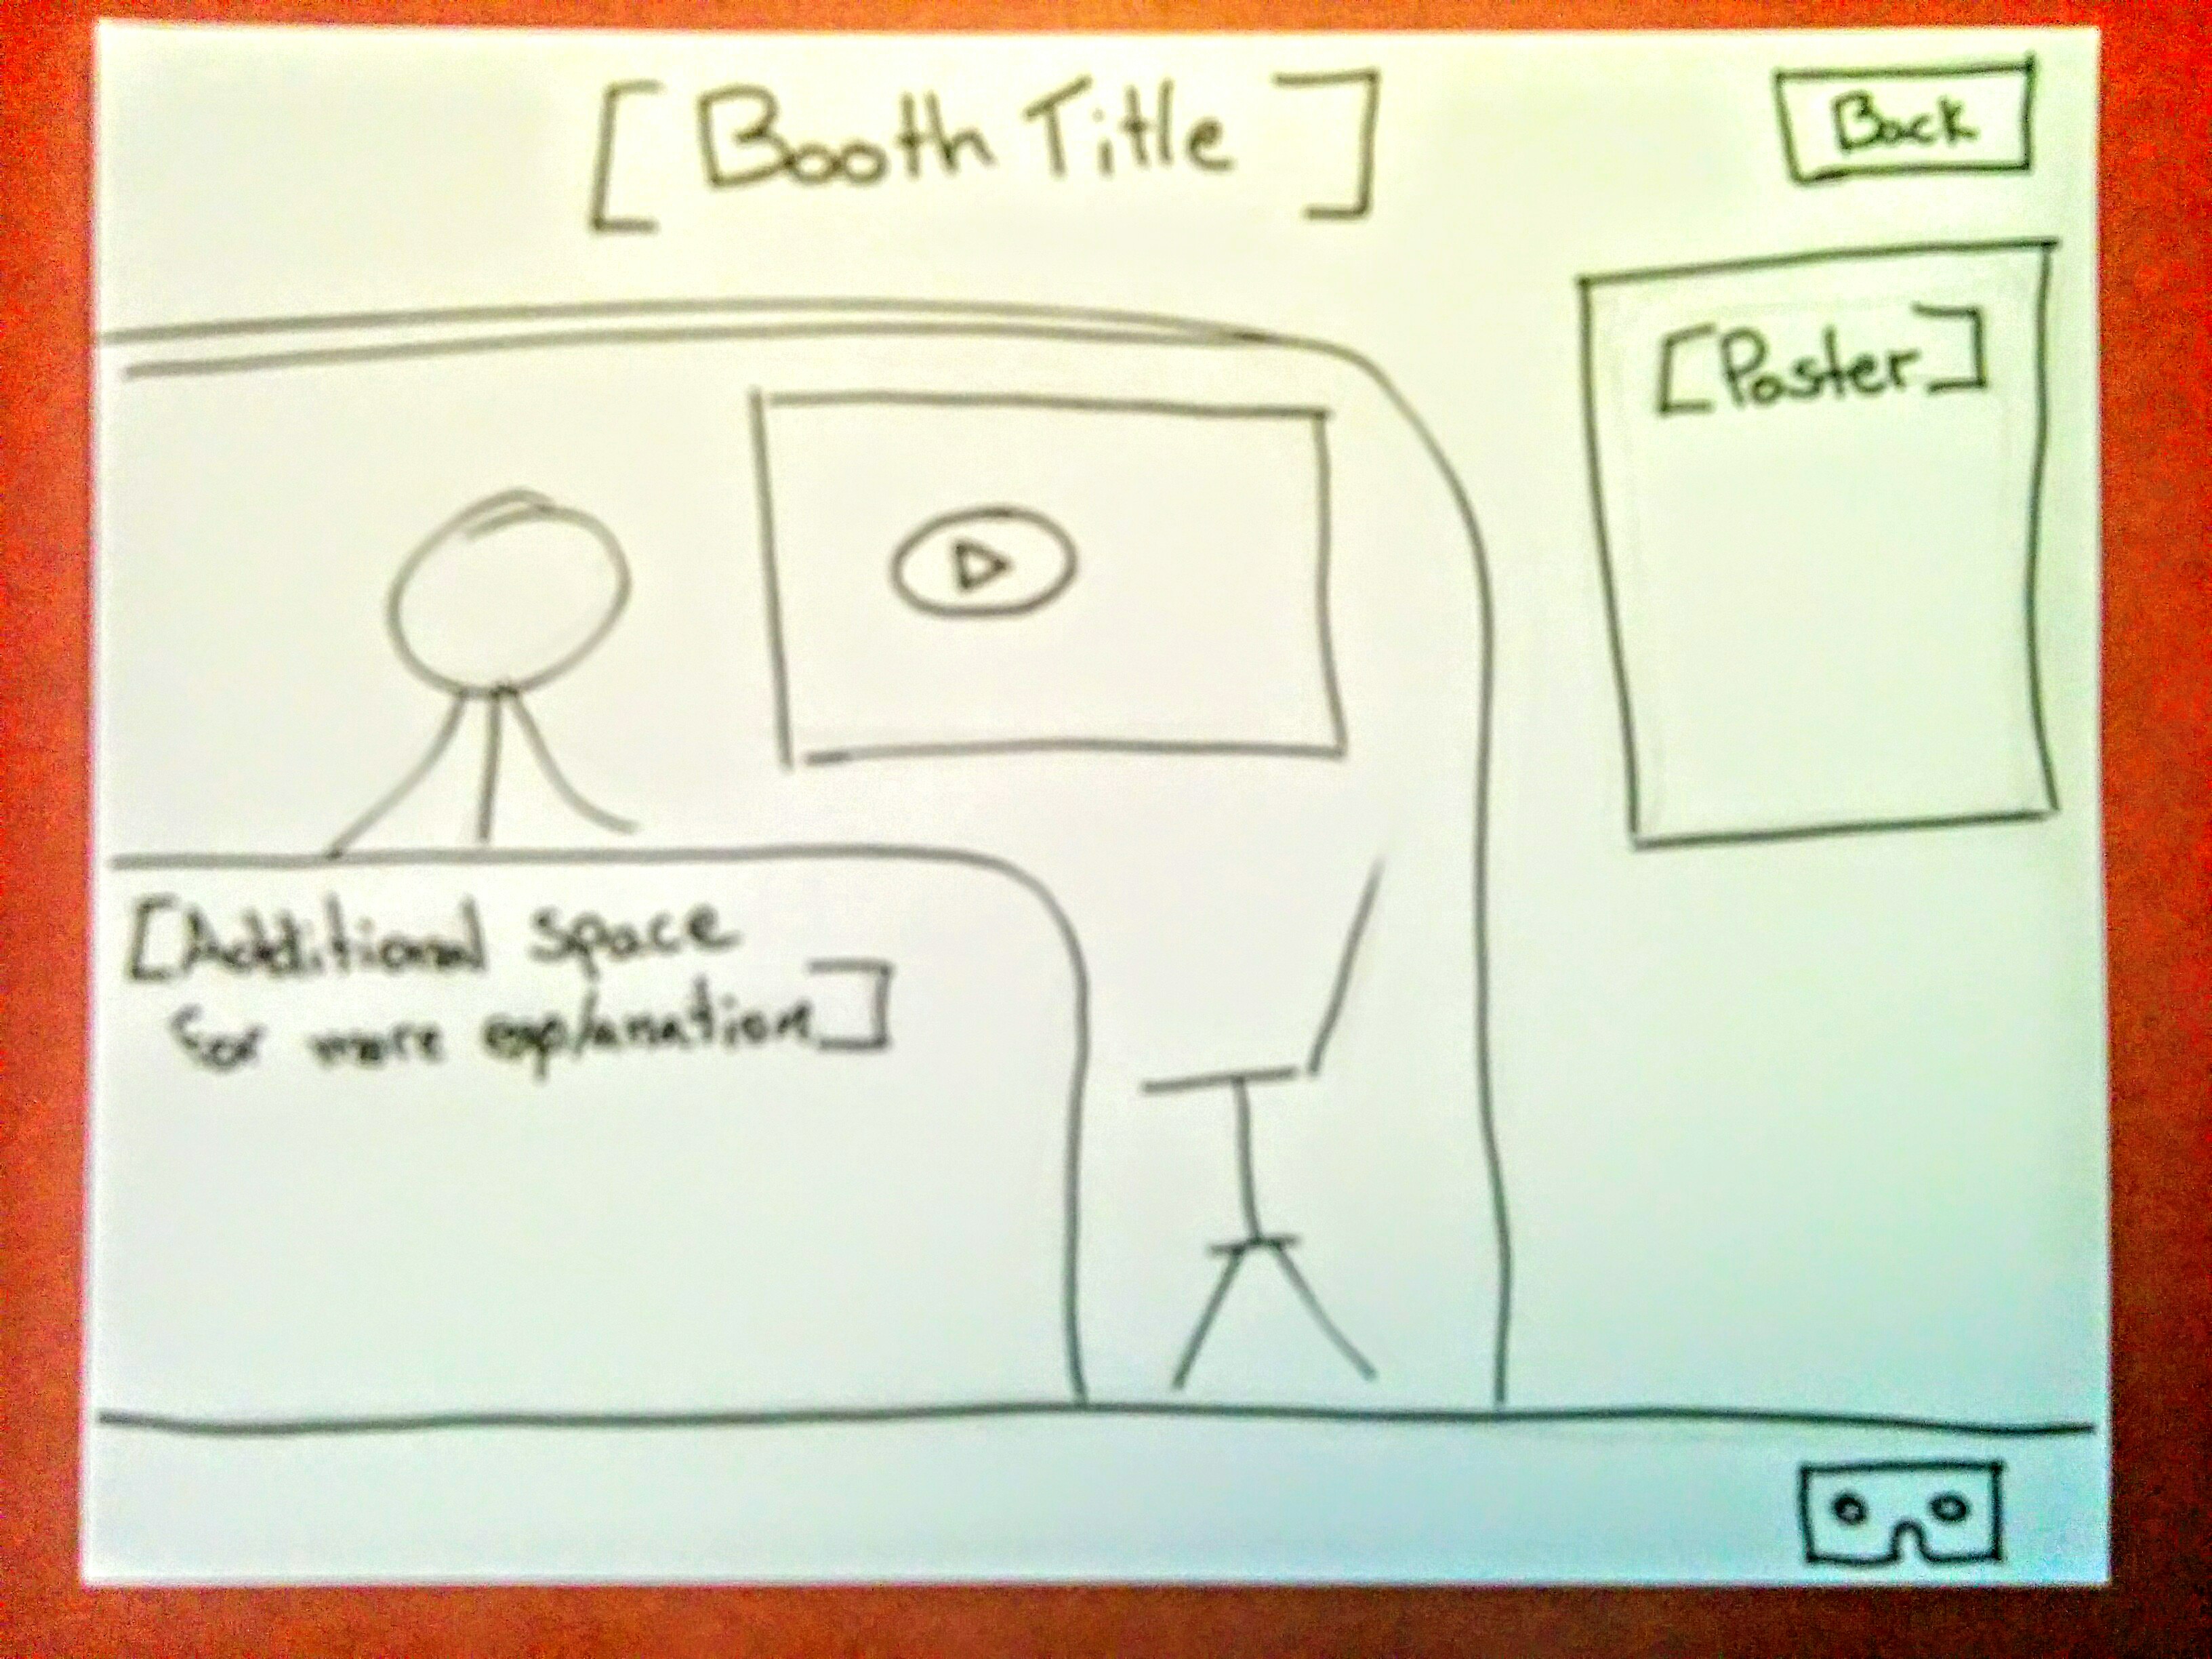 [Booth Title]
Back
[Poster]
[Additional space
for more explanation]